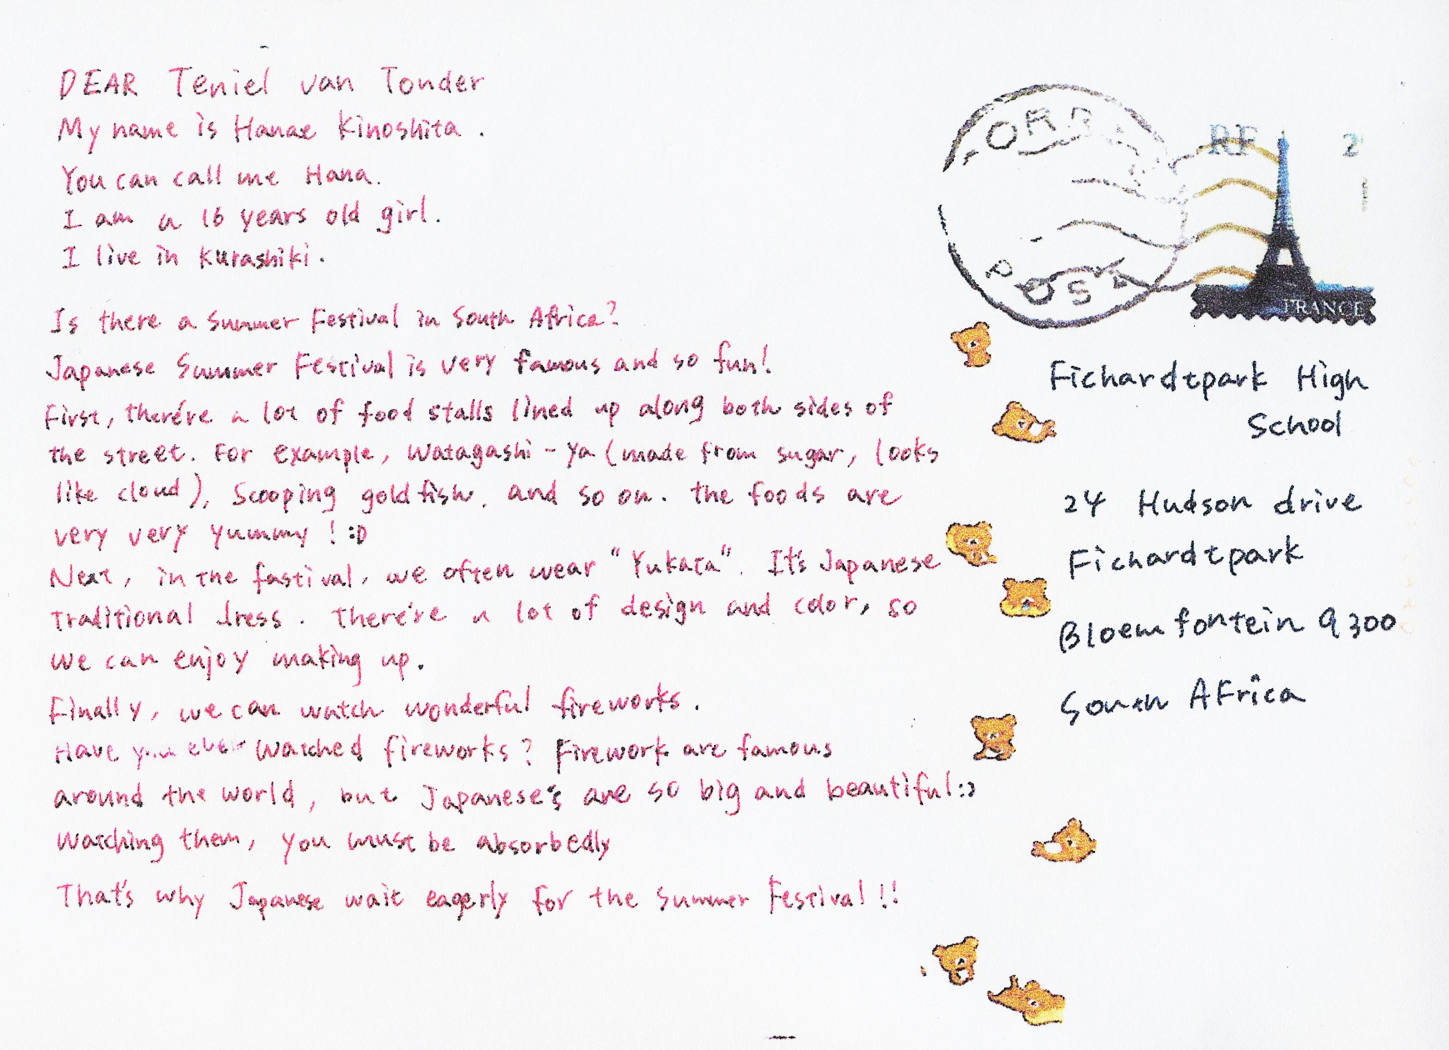 DEAR Teniel van Tonder
My name is Hanae Kinoshita.
You can call me Hana.
I am a 16 years old girl.
I live in Kurashiki.
Is there a Summer Festival in South Africa?
Japanese Summer Festival is very famous and so fun!
First, there're a lot of food stalls lined up along both sides of
the street. For example, Watagashi-ya (made from sugar, looks
like cloud), Scooping goldfish, and so on. the foods are
very very yummy! :D
Next, in the fastival, we often wear "Yukata". It's Japanese
traditional dress. There're a lot of design and color, so
we can enjoy making up.
Finally, we can watch wonderful fireworks.
Have you ever watched fireworks? Firework are famous
around the world, but Japanese's are so big and beautiful:)
Watching them, you must be absorbedly
That's why Japanese wait eagerly for the Summer Festival!!
RF 2
POSA
FRANCE
Fichardtpark High
School
24 Hudson drive
Fichardtpark
Bloemfontein 9300
South AFrica